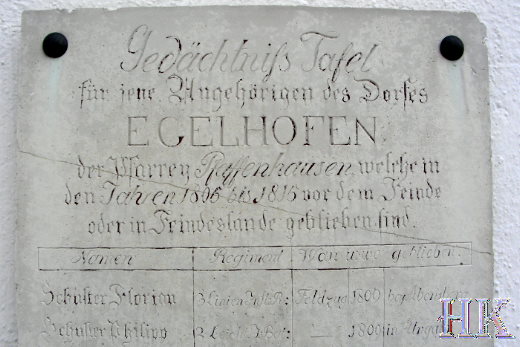 Gedächtniſs Tafel
für jene Angehörigen des Dorfes
EGELHOFEN
der Pfarrey Pfaffenhausen, welche in
den Jahren 1806 bis 1815 vor dem Feinde
oder in Feindeslande geblieben sind.
Namen Regiment Wan u. wo geblieben.
Schuster Florian Feldzug 1809
Schuster Philipp in
HK